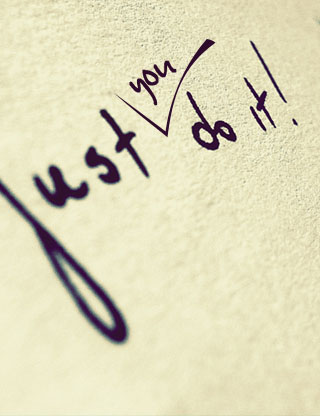 Just you do it!